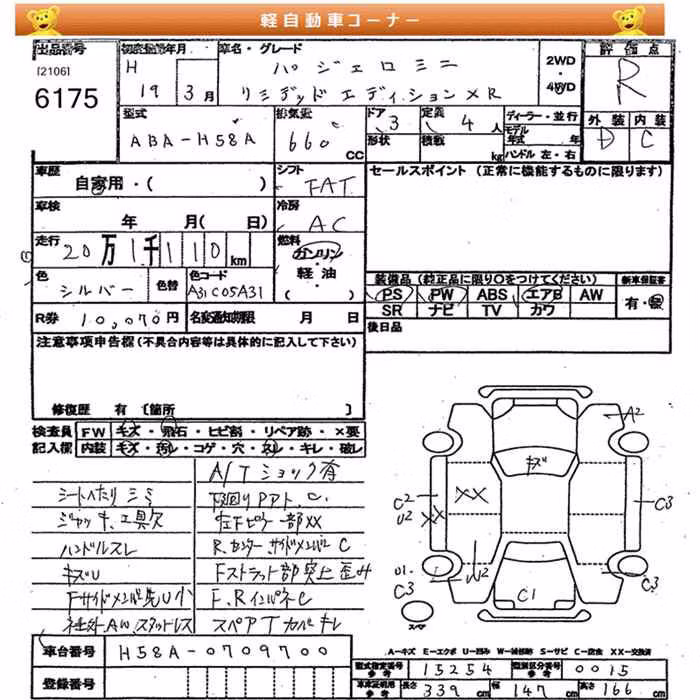 軽自動車コーナー
出品番号
[2106]
6175
初度登録年月
H 19 3月
車名・グレード
パジェロミニ
リミテッドエディションXR
2WD
・
4WD
評価点
R
型式
ABA-H58A
排気量
660 CC
ドア 3
形状
定員 4 人
積載 kg
ディーラー・並行
モデル年式 年
ハンドル 左・右
外装 D
内装 C
車歴
自家用・( )
シフト
FAT
セールスポイント (正常に機能するものに限ります)
車検
年 月( 日)
冷房
AC
走行
20万1千110km
燃料
ガソリン
・
軽油
( )
色
シルバー
色替
色コード
A31C05A31
装備品 (純正品に限り○をつけてください)
PS PW ABS エアB AW
SR ナビ TV カワ
新車保証書
有・無
R券 10,070円
名変通知期限 月 日
後日品
注意事項申告欄 (不具合内容等は具体的に記入して下さい)
修復歴 有 〔箇所 〕
検査員記入欄
FW キズ・飛石・ヒビ割・リペア跡・×要
内装 キズ・汚れ・コゲ・穴・スレ・キレ・破レ
A/Tショック有
シートヘたりシミ
下回りPアト、C
ジャッキ、工具欠
左Fピラー部XX
ハンドルスレ
R.センター、サイドメンバーC
キズU
Fストラット部突上歪み
Fサイドメンバ先U小
F、RインパネC
社外AW、スタッドレス
スペアTカバーキレ
A2
キズ
C2
U2
XX
XX
C3
U1
C3
U2
C1
C3
スペア
A-キズ E-エクボ U-凹み W-補修跡 S-サビ C-腐食 XX-交換済
車台番号
H58A-0709700
登録番号
型式指定番号 15254
類別区分番号 0015
車庫証明用参考 長さ 339 cm 幅 147 cm 高さ 166 cm